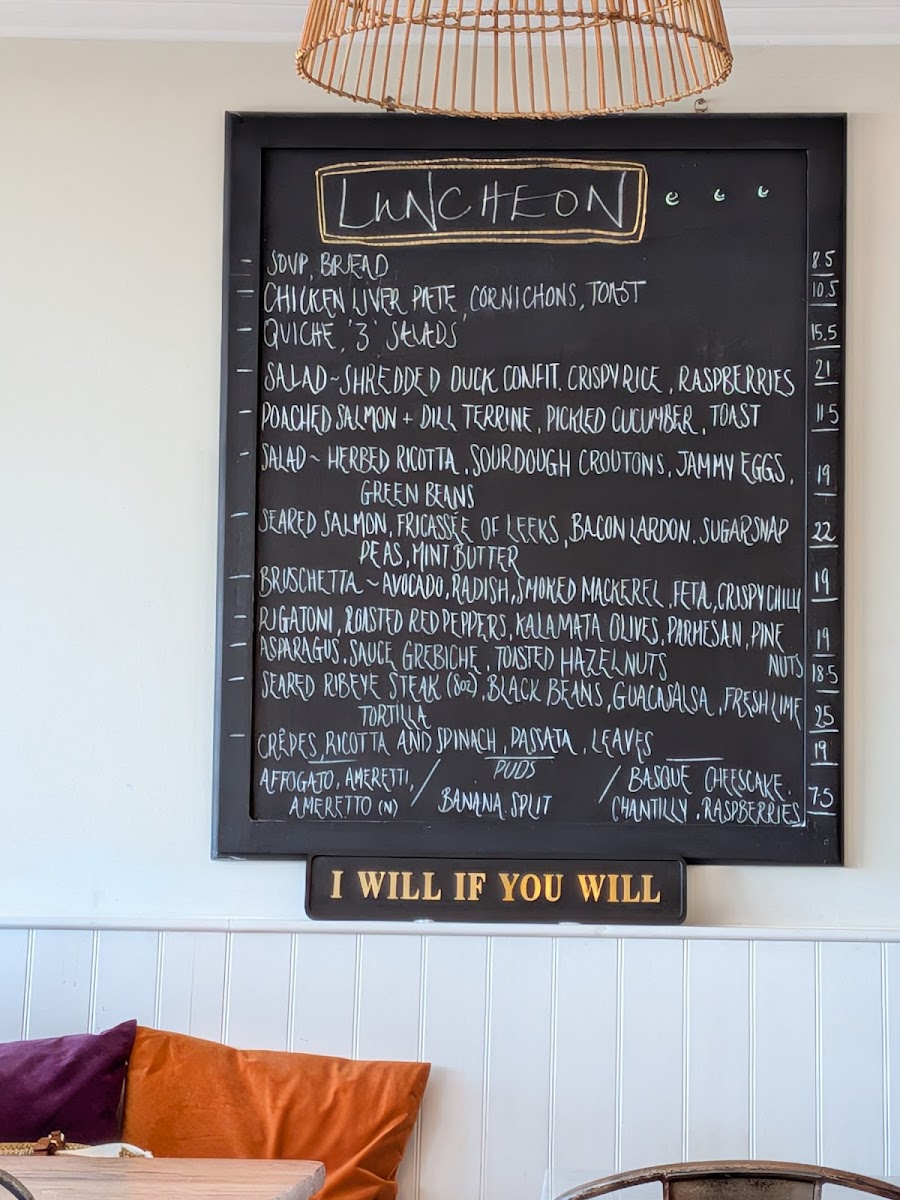 LUNCHEON
SOUP, BREAD 8.5
CHICKEN LIVER PATE, CORNICHONS, TOAST 10.5
QUICHE, '3' SALADS 15.5
SALAD~SHREDDED DUCK CONFIT, CRISPY RICE, RASPBERRIES 21
POACHED SALMON + DILL TERRINE, PICKLED CUCUMBER, TOAST 11.5
SALAD~ HERBED RICOTTA, SOURDOUGH CROUTONS, JAMMY EGGS, 19
GREEN BEANS
SEARED SALMON, FRICASSÉE OF LEEKS, BACON LARDON, SUGARSNAP 22
PEAS, MINT BUTTER
BRUSCHETTA ~ AVOCADO, RADISH, SMOKED MACKEREL, FETA, CRISPY CHILLI 19
RIGATONI, ROASTED RED PEPPERS, KALAMATA OLIVES, PARMESAN, PINE 19
NUTS
ASPARAGUS, SAUCE GREBICHE, TOASTED HAZELNUTS 18.5
SEARED RIBEYE STEAK (8oz), BLACK BEANS, GUACASALSA, FRESH LIME 25
TORTILLA
CRÊPES, RICOTTA AND SPINACH, PASSATA, LEAVES 19
PUDS
AFFOGATO, AMERETTI, / BANANA SPLIT / BASQUE CHEESCAKE, 7.5
AMERETTO (N) CHANTILLY, RASPBERRIES
I WILL IF YOU WILL